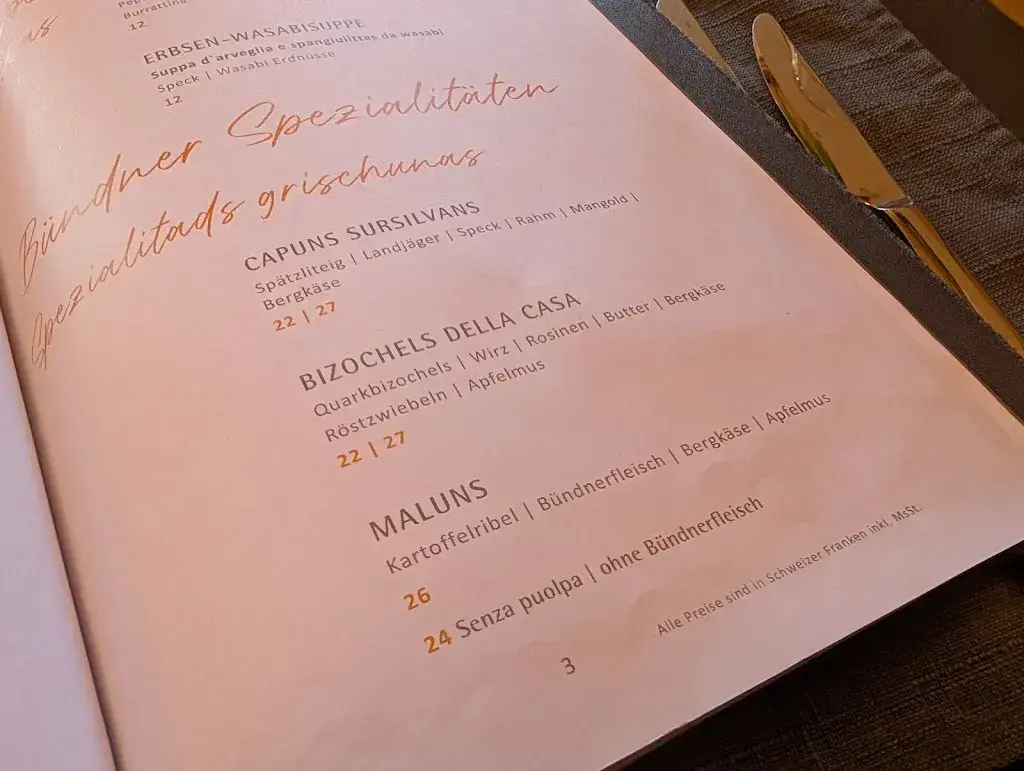 Burrattina
12
ERBSEN-WASABISUPPE
Suppa d'arveglia e spangiulittas da wasabi
Speck | Wasabi Erdnüsse
12
Bündner Spezialitäten
Spezialitads grischunas
CAPUNS SURSILVANS
Spätzliteig | Landjäger | Speck | Rahm | Mangold |
Bergkäse
22 | 27
BIZOCHELS DELLA CASA
Quarkbizochels | Wirz | Rosinen | Butter | Bergkäse
Röstzwiebeln | Apfelmus
22 | 27
MALUNS
Kartoffelribel | Bündnerfleisch | Bergkäse | Apfelmus
26
24 Senza puolpa | ohne Bündnerfleisch
Alle Preise sind in Schweizer Franken inkl. MsSt.
3